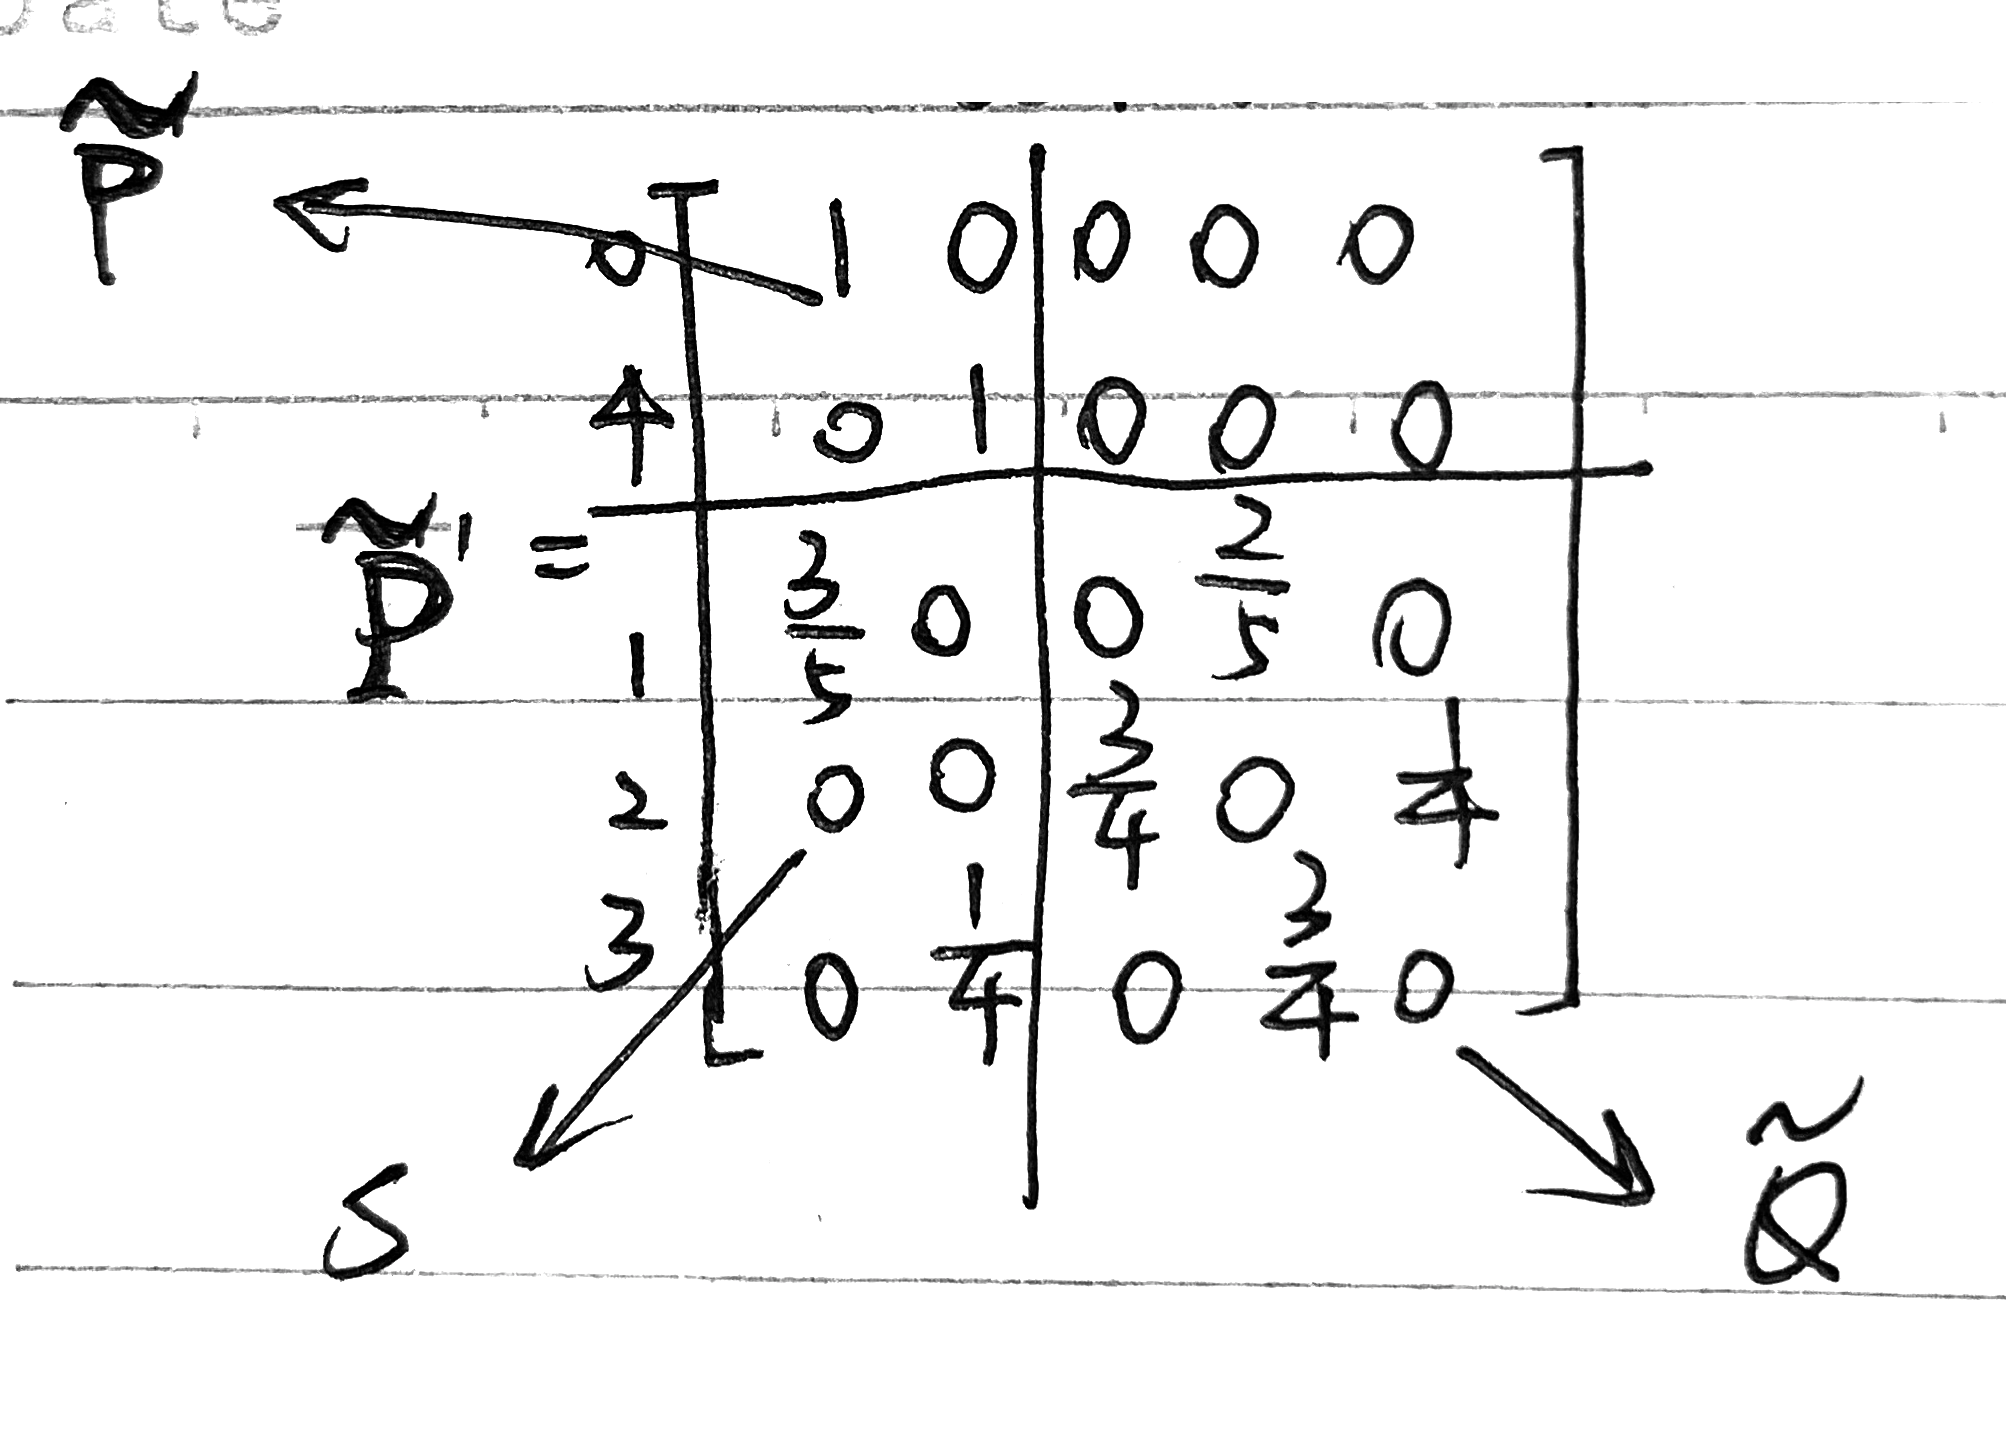 Date
P̃
0 1 0 0 0 0
4 0 1 0 0 0
P̃' =
1 3/5 0 0 2/5 0
2 0 0 3/4 0 1/4
3 0 1/4 0 3/4 0
S Q̃